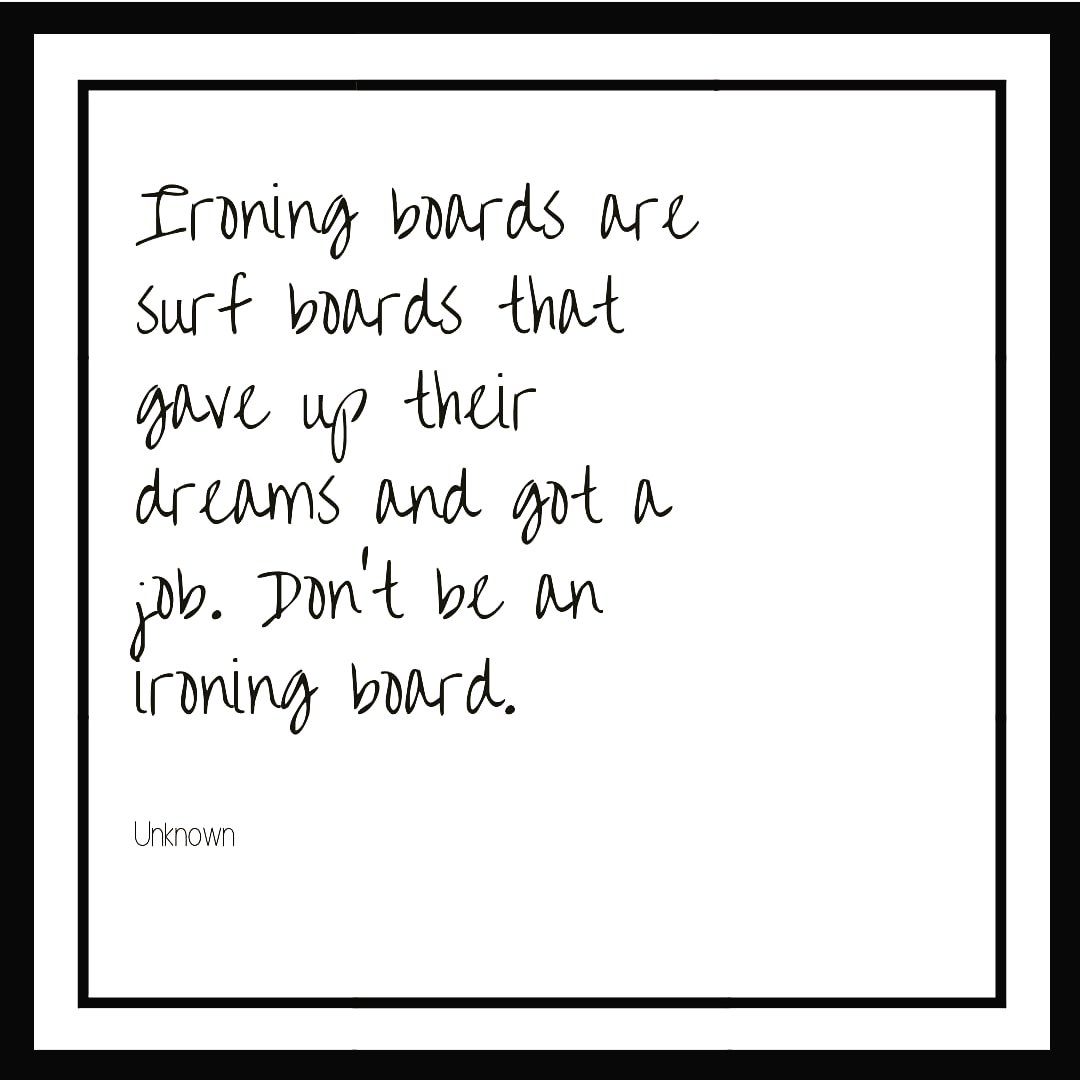 Ironing boards are
surf boards that
gave up their
dreams and got a
job. Don't be an
ironing board.
Unknown